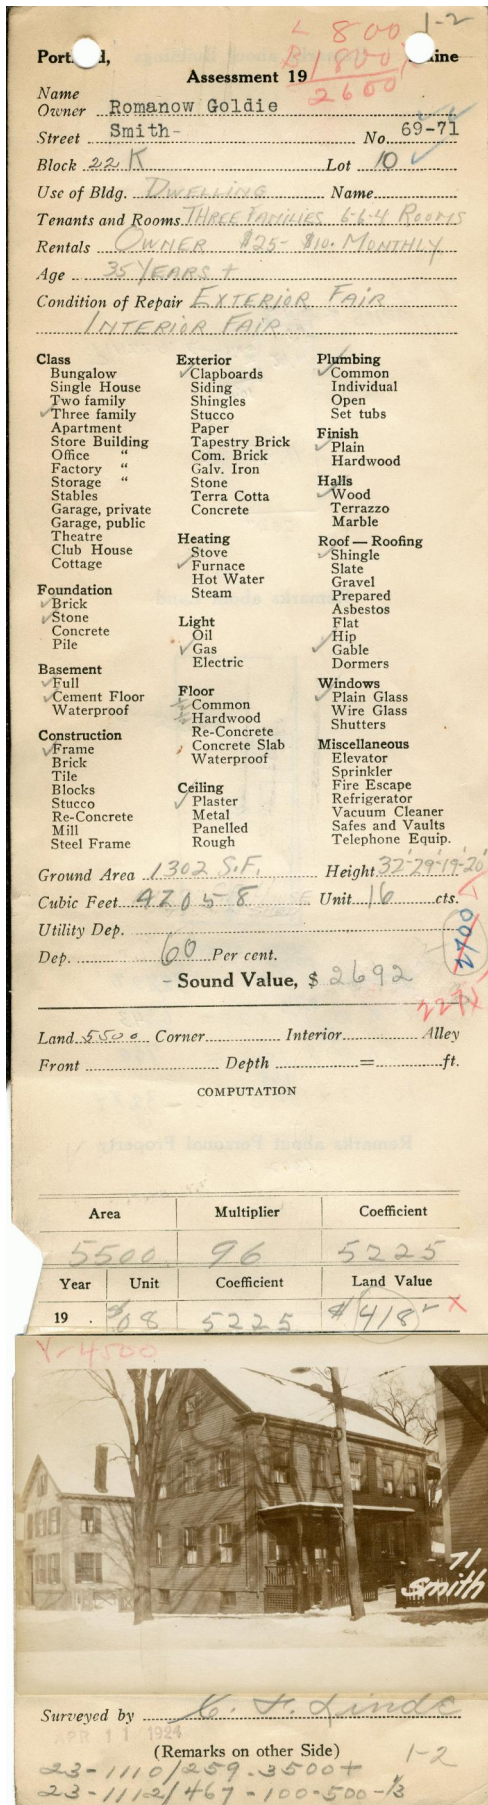 L 800 1-2
Portland, Maine
B 1800
Assessment 19
2600
Name
Owner Romanow Goldie
Street Smith- No. 69-71
Block 22K Lot 10
Use of Bldg. Dwelling Name
Tenants and Rooms Three Families 6-6-4 Rooms
Rentals Owner $25- $10. Monthly
Age 35 Years +
Condition of Repair Exterior Fair
Interior Fair
Class
Bungalow
Single House
Two family
✓ Three family
Apartment
Store Building
Office "
Factory "
Storage "
Stables
Garage, private
Garage, public
Theatre
Club House
Cottage
Foundation
✓ Brick
✓ Stone
Concrete
Pile
Basement
✓ Full
✓ Cement Floor
Waterproof
Construction
✓ Frame
Brick
Tile
Blocks
Stucco
Re-Concrete
Mill
Steel Frame
Exterior
✓ Clapboards
Siding
Shingles
Stucco
Paper
Tapestry Brick
Com. Brick
Galv. Iron
Stone
Terra Cotta
Concrete
Heating
Stove
✓ Furnace
Hot Water
Steam
Light
Oil
✓ Gas
Electric
Floor
½ Common
½ Hardwood
Re-Concrete
Concrete Slab
Waterproof
Ceiling
✓ Plaster
Metal
Panelled
Rough
Plumbing
✓ Common
Individual
Open
Set tubs
Finish
✓ Plain
Hardwood
Halls
✓ Wood
Terrazzo
Marble
Roof — Roofing
✓ Shingle
Slate
Gravel
Prepared
Asbestos
Flat
Hip
✓ Gable
Dormers
Windows
✓ Plain Glass
Wire Glass
Shutters
Miscellaneous
Elevator
Sprinkler
Fire Escape
Refrigerator
Vacuum Cleaner
Safes and Vaults
Telephone Equip.
Ground Area 1302 S.F. Height 32'-29'-19'-20'
Cubic Feet 42058 Unit 16 cts.
Utility Dep.
Dep. 60 Per cent.
Sound Value, $ 2692
Land 5500 Corner Interior Alley
Front Depth = ft.
COMPUTATION
Area Multiplier Coefficient
5500 96 5225
Year Unit Coefficient Land Value
19 . $08 5225 $418 X
Y-4500
71
Smith
Surveyed by C. F. Linde
APR 11 1924
(Remarks on other Side) 1-2
23-1110/259-3500+
23-1112/467-100-500-13